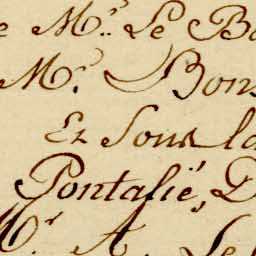 e Mr. Le Bo
Mr. Bons
Et Sous la
Pontalié, D
Mr. A. Le